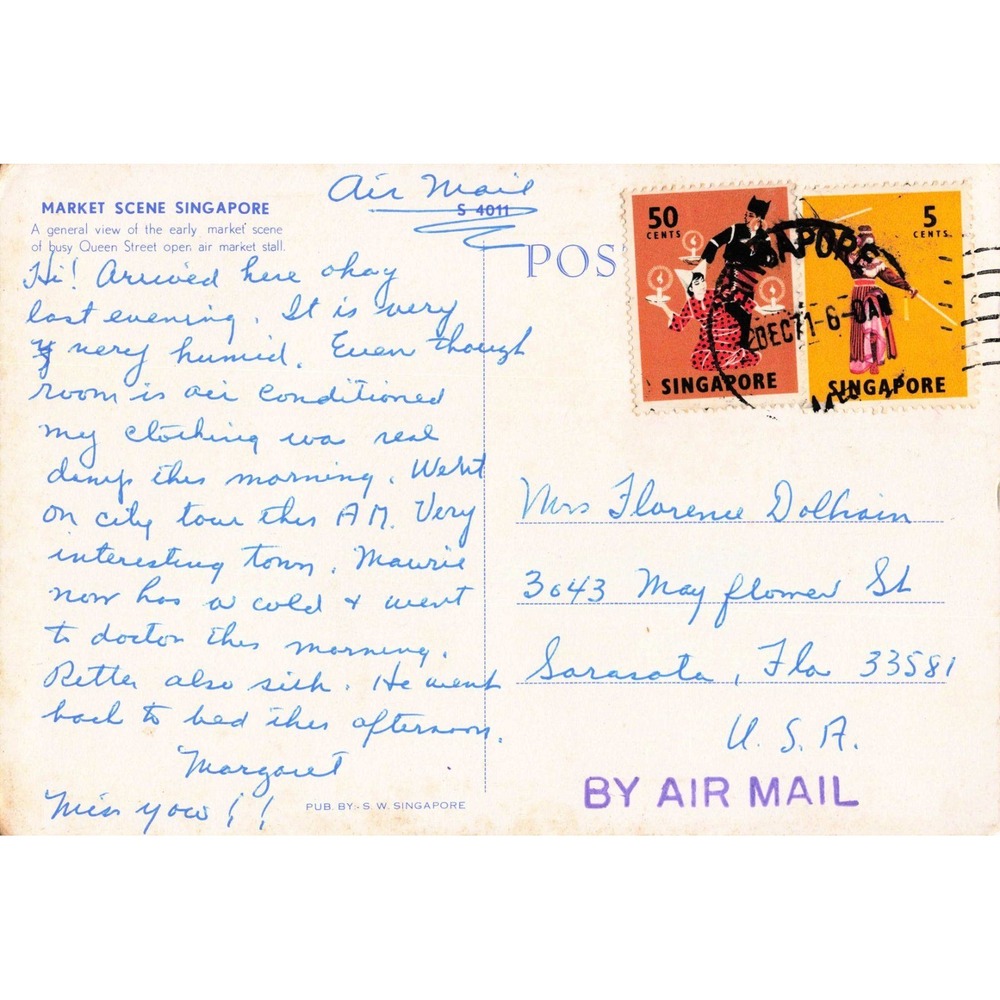 Air Mail
MARKET SCENE SINGAPORE
S 4011
A general view of the early market scene
of busy Queen Street open air market stall.
POS
50
CENTS
SINGAPORE
5
CENTS
SINGAPORE
SINGAPORE
DEC71-6-
Hi! Arrived here okay
last evening. It is very
very humid. Even though
room is air conditioned
my clothing was real
damp this morning. Went
on city tour this A M. Very
interesting town. Maurie
now has a cold & went
to doctor this morning.
also sick. He went
back to bed this afternoon.
Margaret
Miss you!!
PUB. BY · S. W. SINGAPORE
Mrs Florence Dolhain
3043 Mayflower St
Sarasota, Fla 33581
U. S. A.
BY AIR MAIL